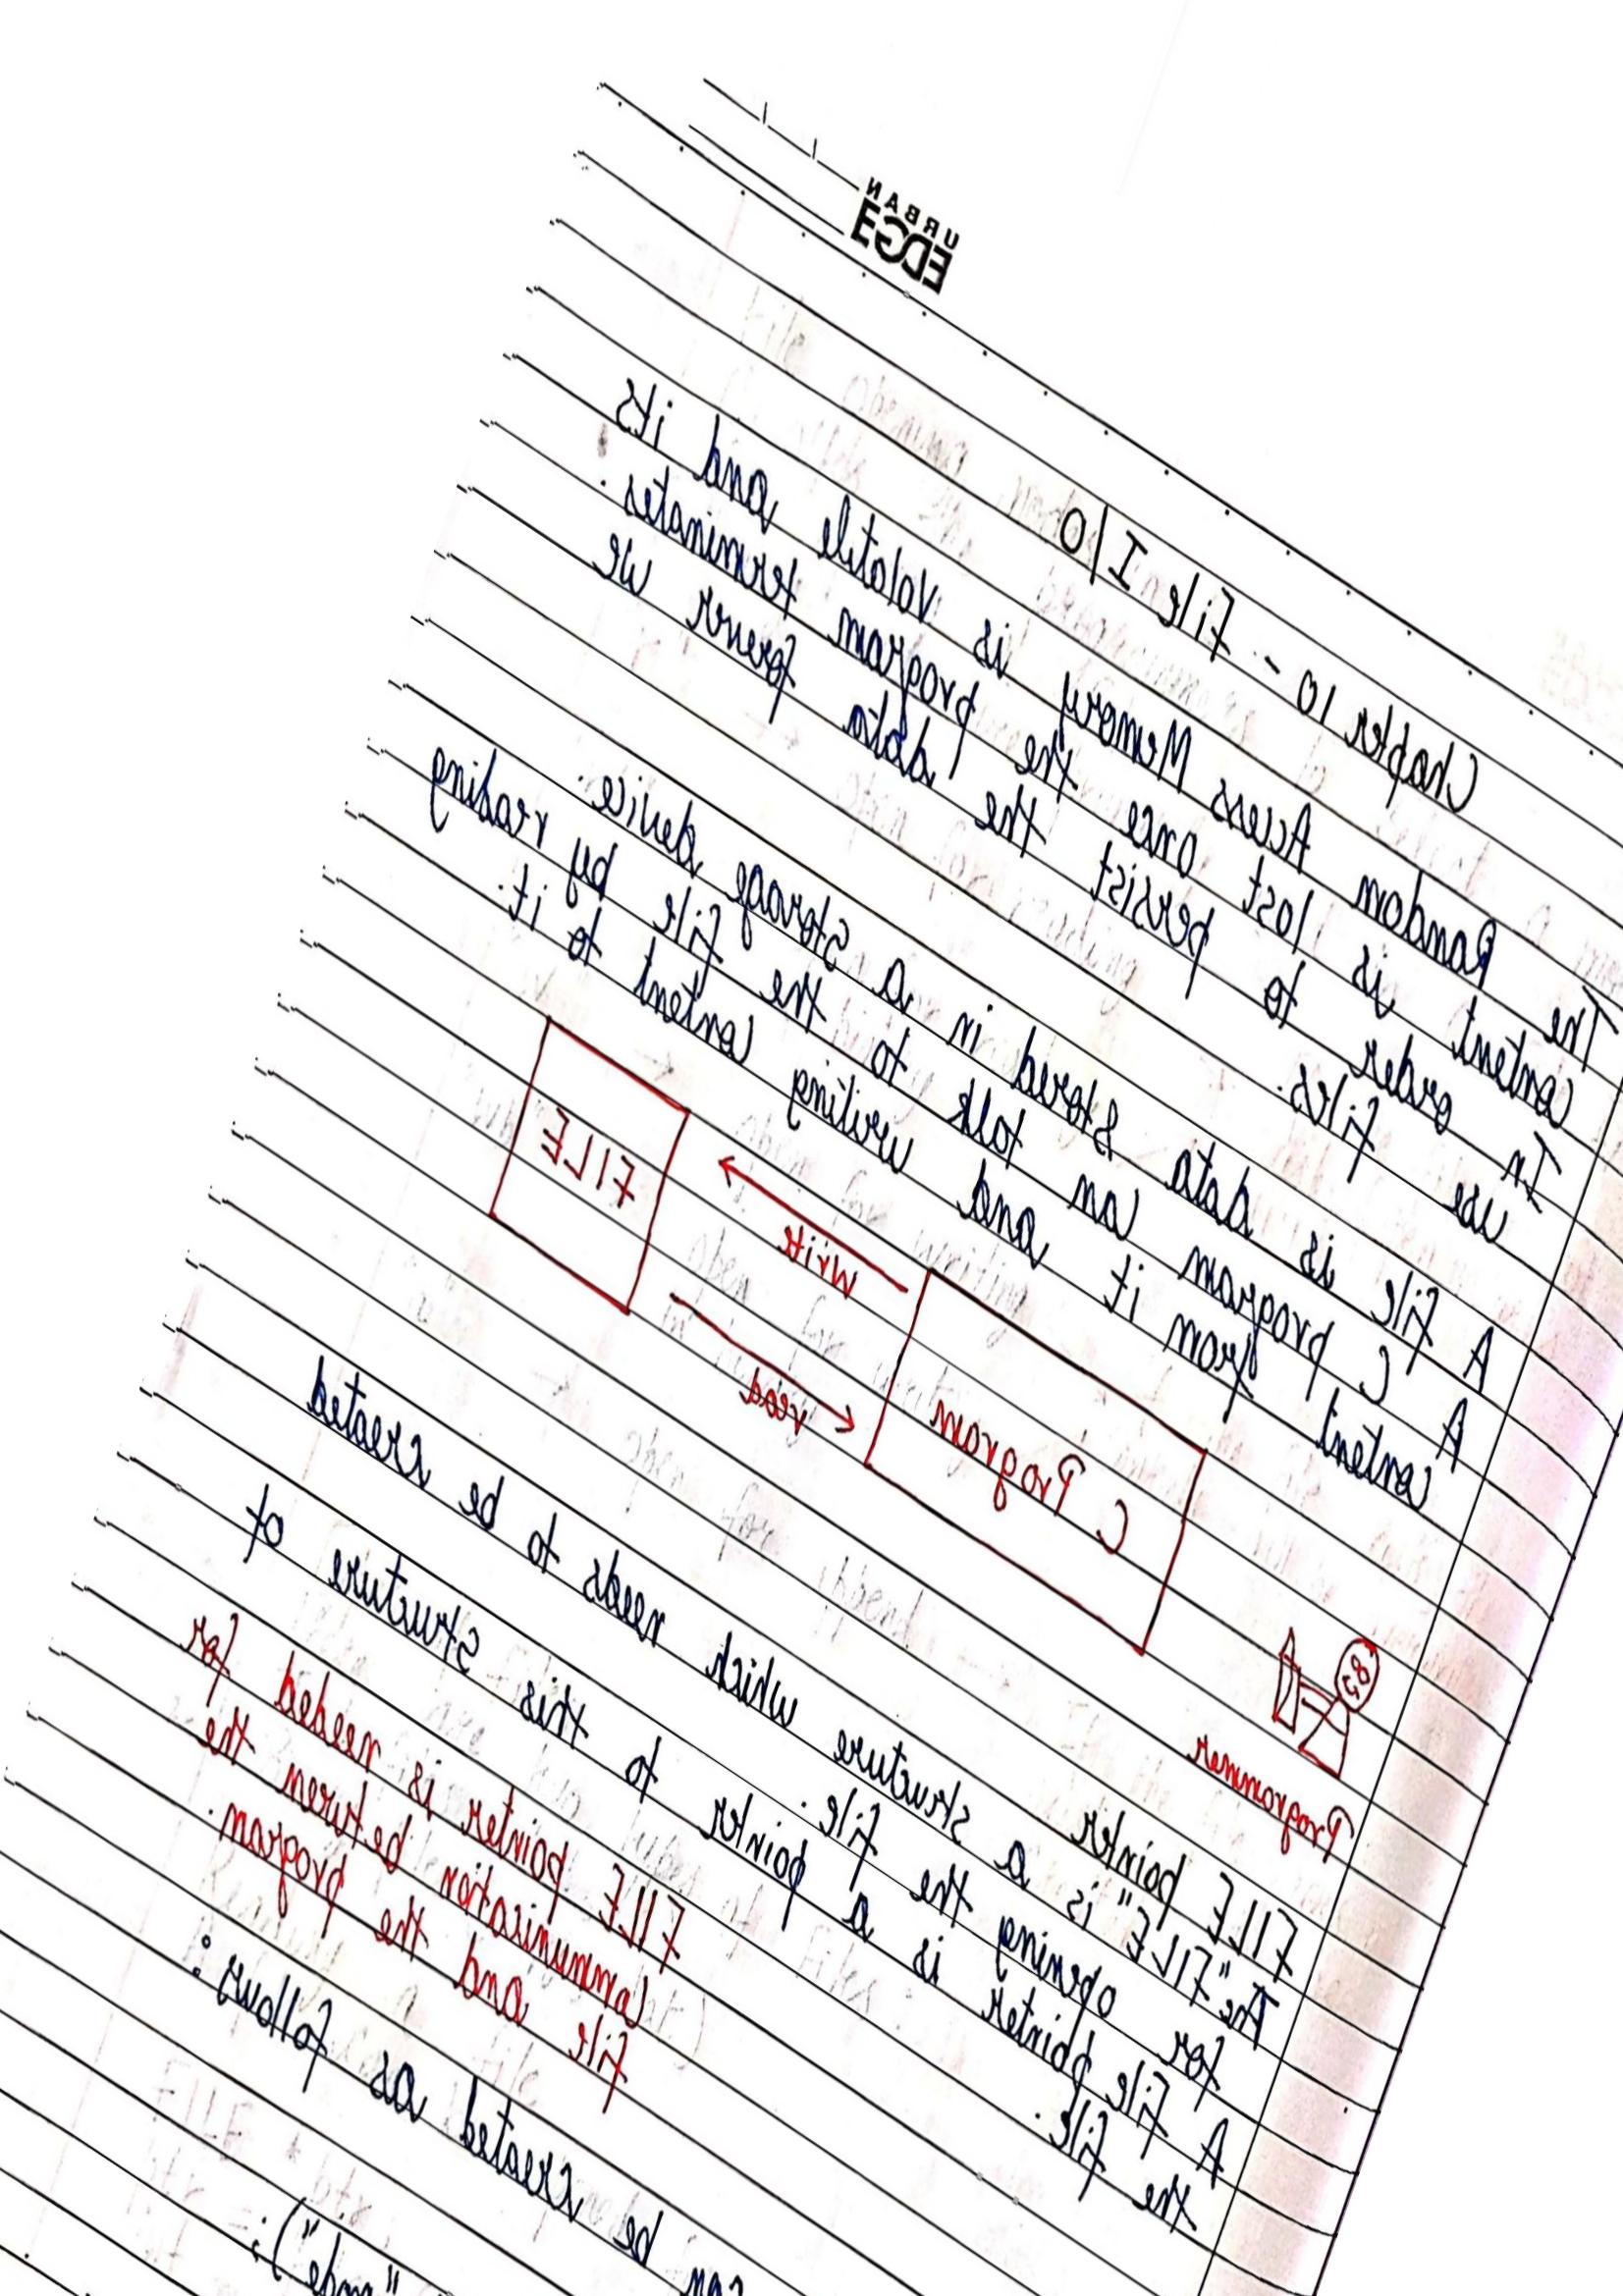 URBAN
EDGE
Chapter 10 - File I/O
The Random Access Memory is volatile and its
content is lost once the program terminates.
In order to persist the data forever we
use files.
A file is data stored in a storage device.
A C program can talk to the file by reading
content from it and writing content to it.
Programmer
C Program
write
read
FILE
FILE pointer
The "FILE" is a structure which needs to be created
for opening the file.
A file pointer is a pointer to this structure of
the file.
FILE pointer is needed for
communication between the
file and the program.
can be created as follows:
"mode");